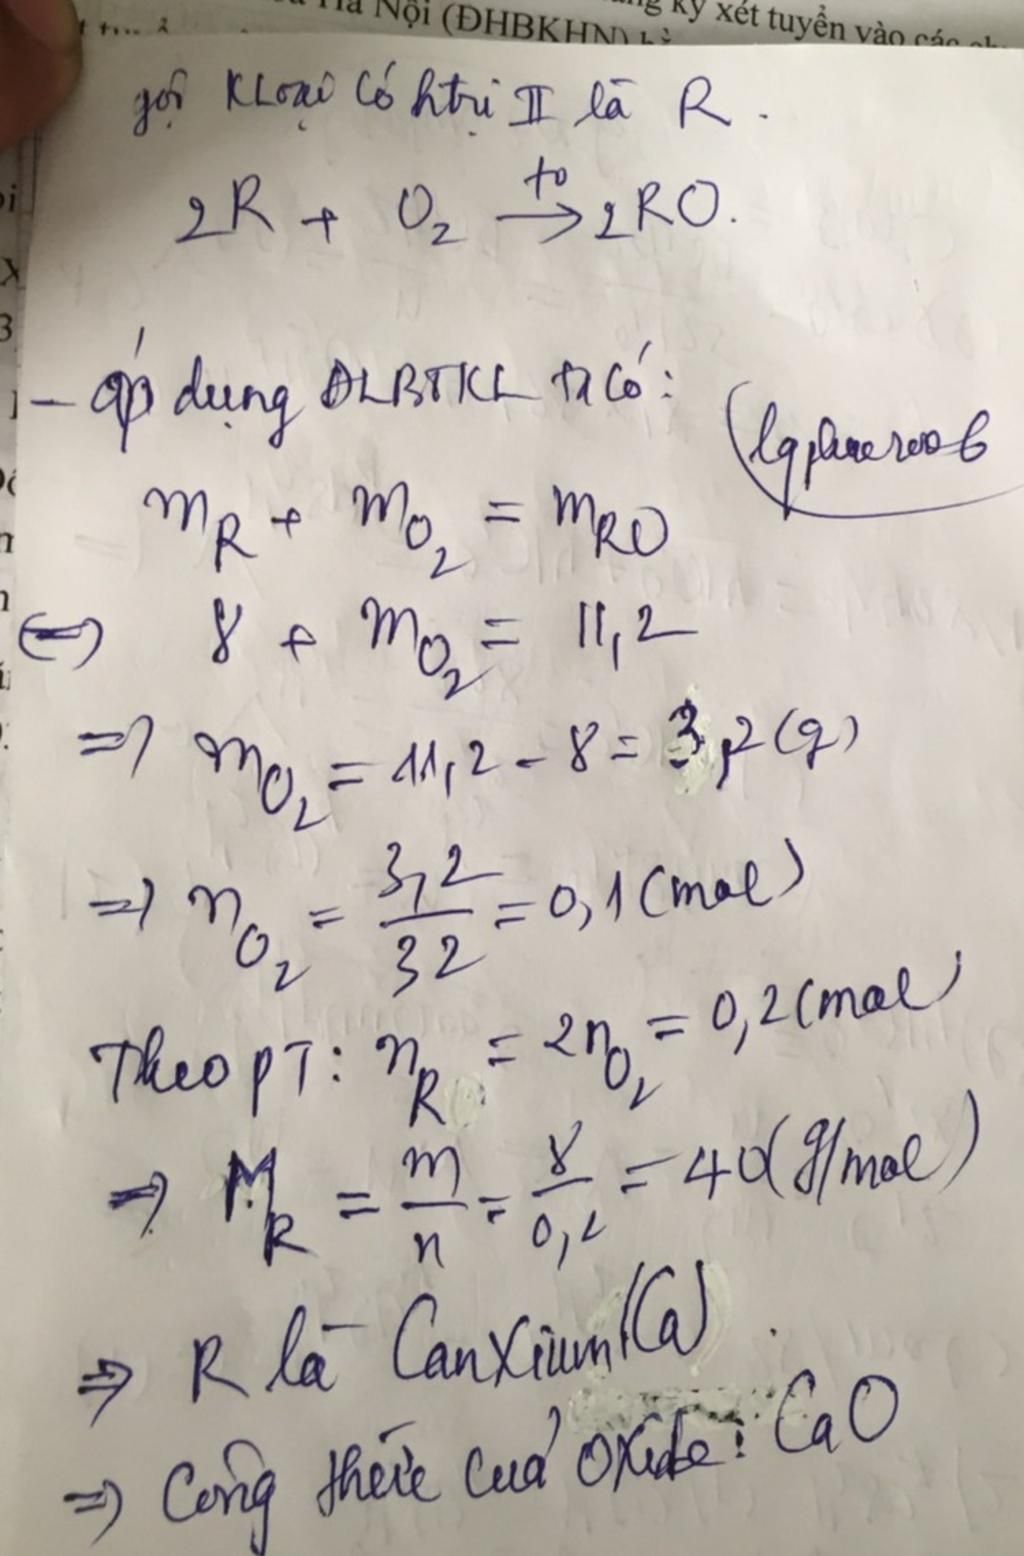 Hà Nội (ĐHBKHN)
ký xét tuyển vào các
gọi KLoại có htrị II là R.
2R + O₂ →(t⁰) 2RO.
- áp dụng ĐLBTKL ta có:
(lqphuc2006
m_R + m_O₂ = m_RO
⇔ 8 + m_O₂ = 11,2
⇒ m_O₂ = 11,2 - 8 = 3,2 (g)
⇒ n_O₂ = 3,2/32 = 0,1 (mol)
Theo PT: n_R = 2n_O₂ = 0,2 (mol)
⇒ M_R = m/n = 8/0,2 = 40 (g/mol)
⇒ R là CanXium (Ca).
⇒ Công thức của oxide: CaO